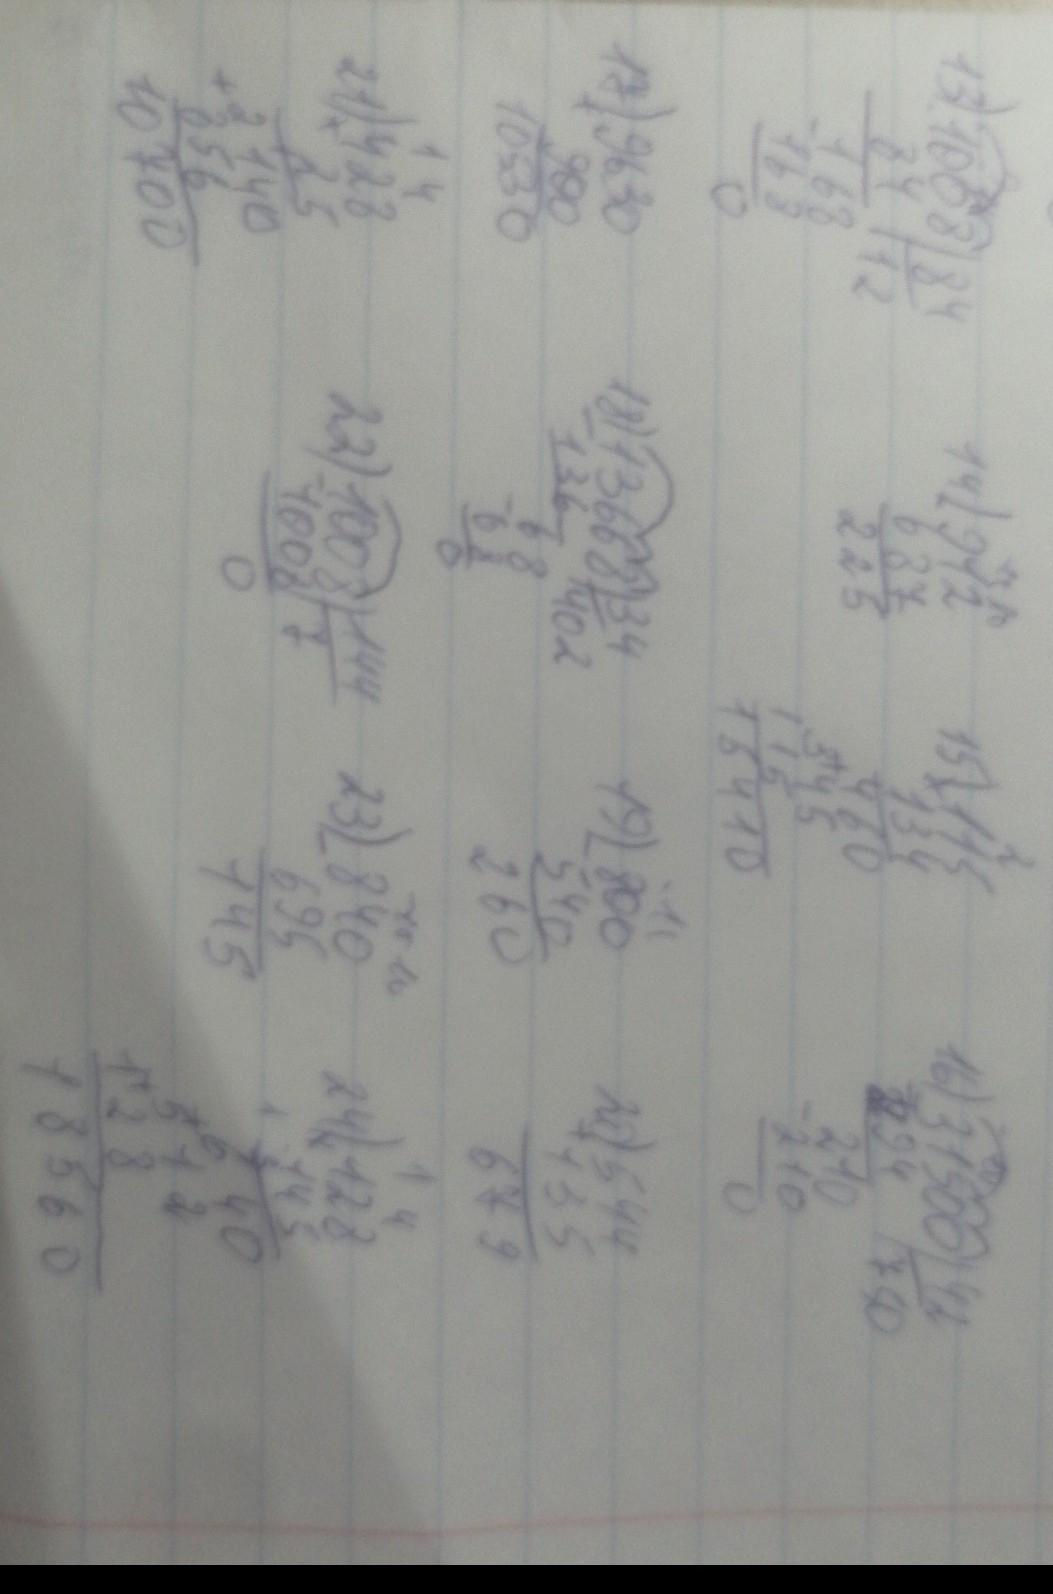 13) 1008 | 84
84 | 12
- 168
168
0
14) 912
687
225
15) 115
134
460
345
115
15410
16) 31500 | 42
294
- 210
210
0
17) 9630
+ 900
10530
18) 13668 | 34
- 136 | 402
- 68
68
0
19) 800
- 540
260
20) 544
+ 135
679
1 4
21) 428
25
2140
+ 856
10700
22) 1008 | 144
- 1008 | 7
0
23) 840
- 695
145
1 4
24) 128
145
640
512
128
18560